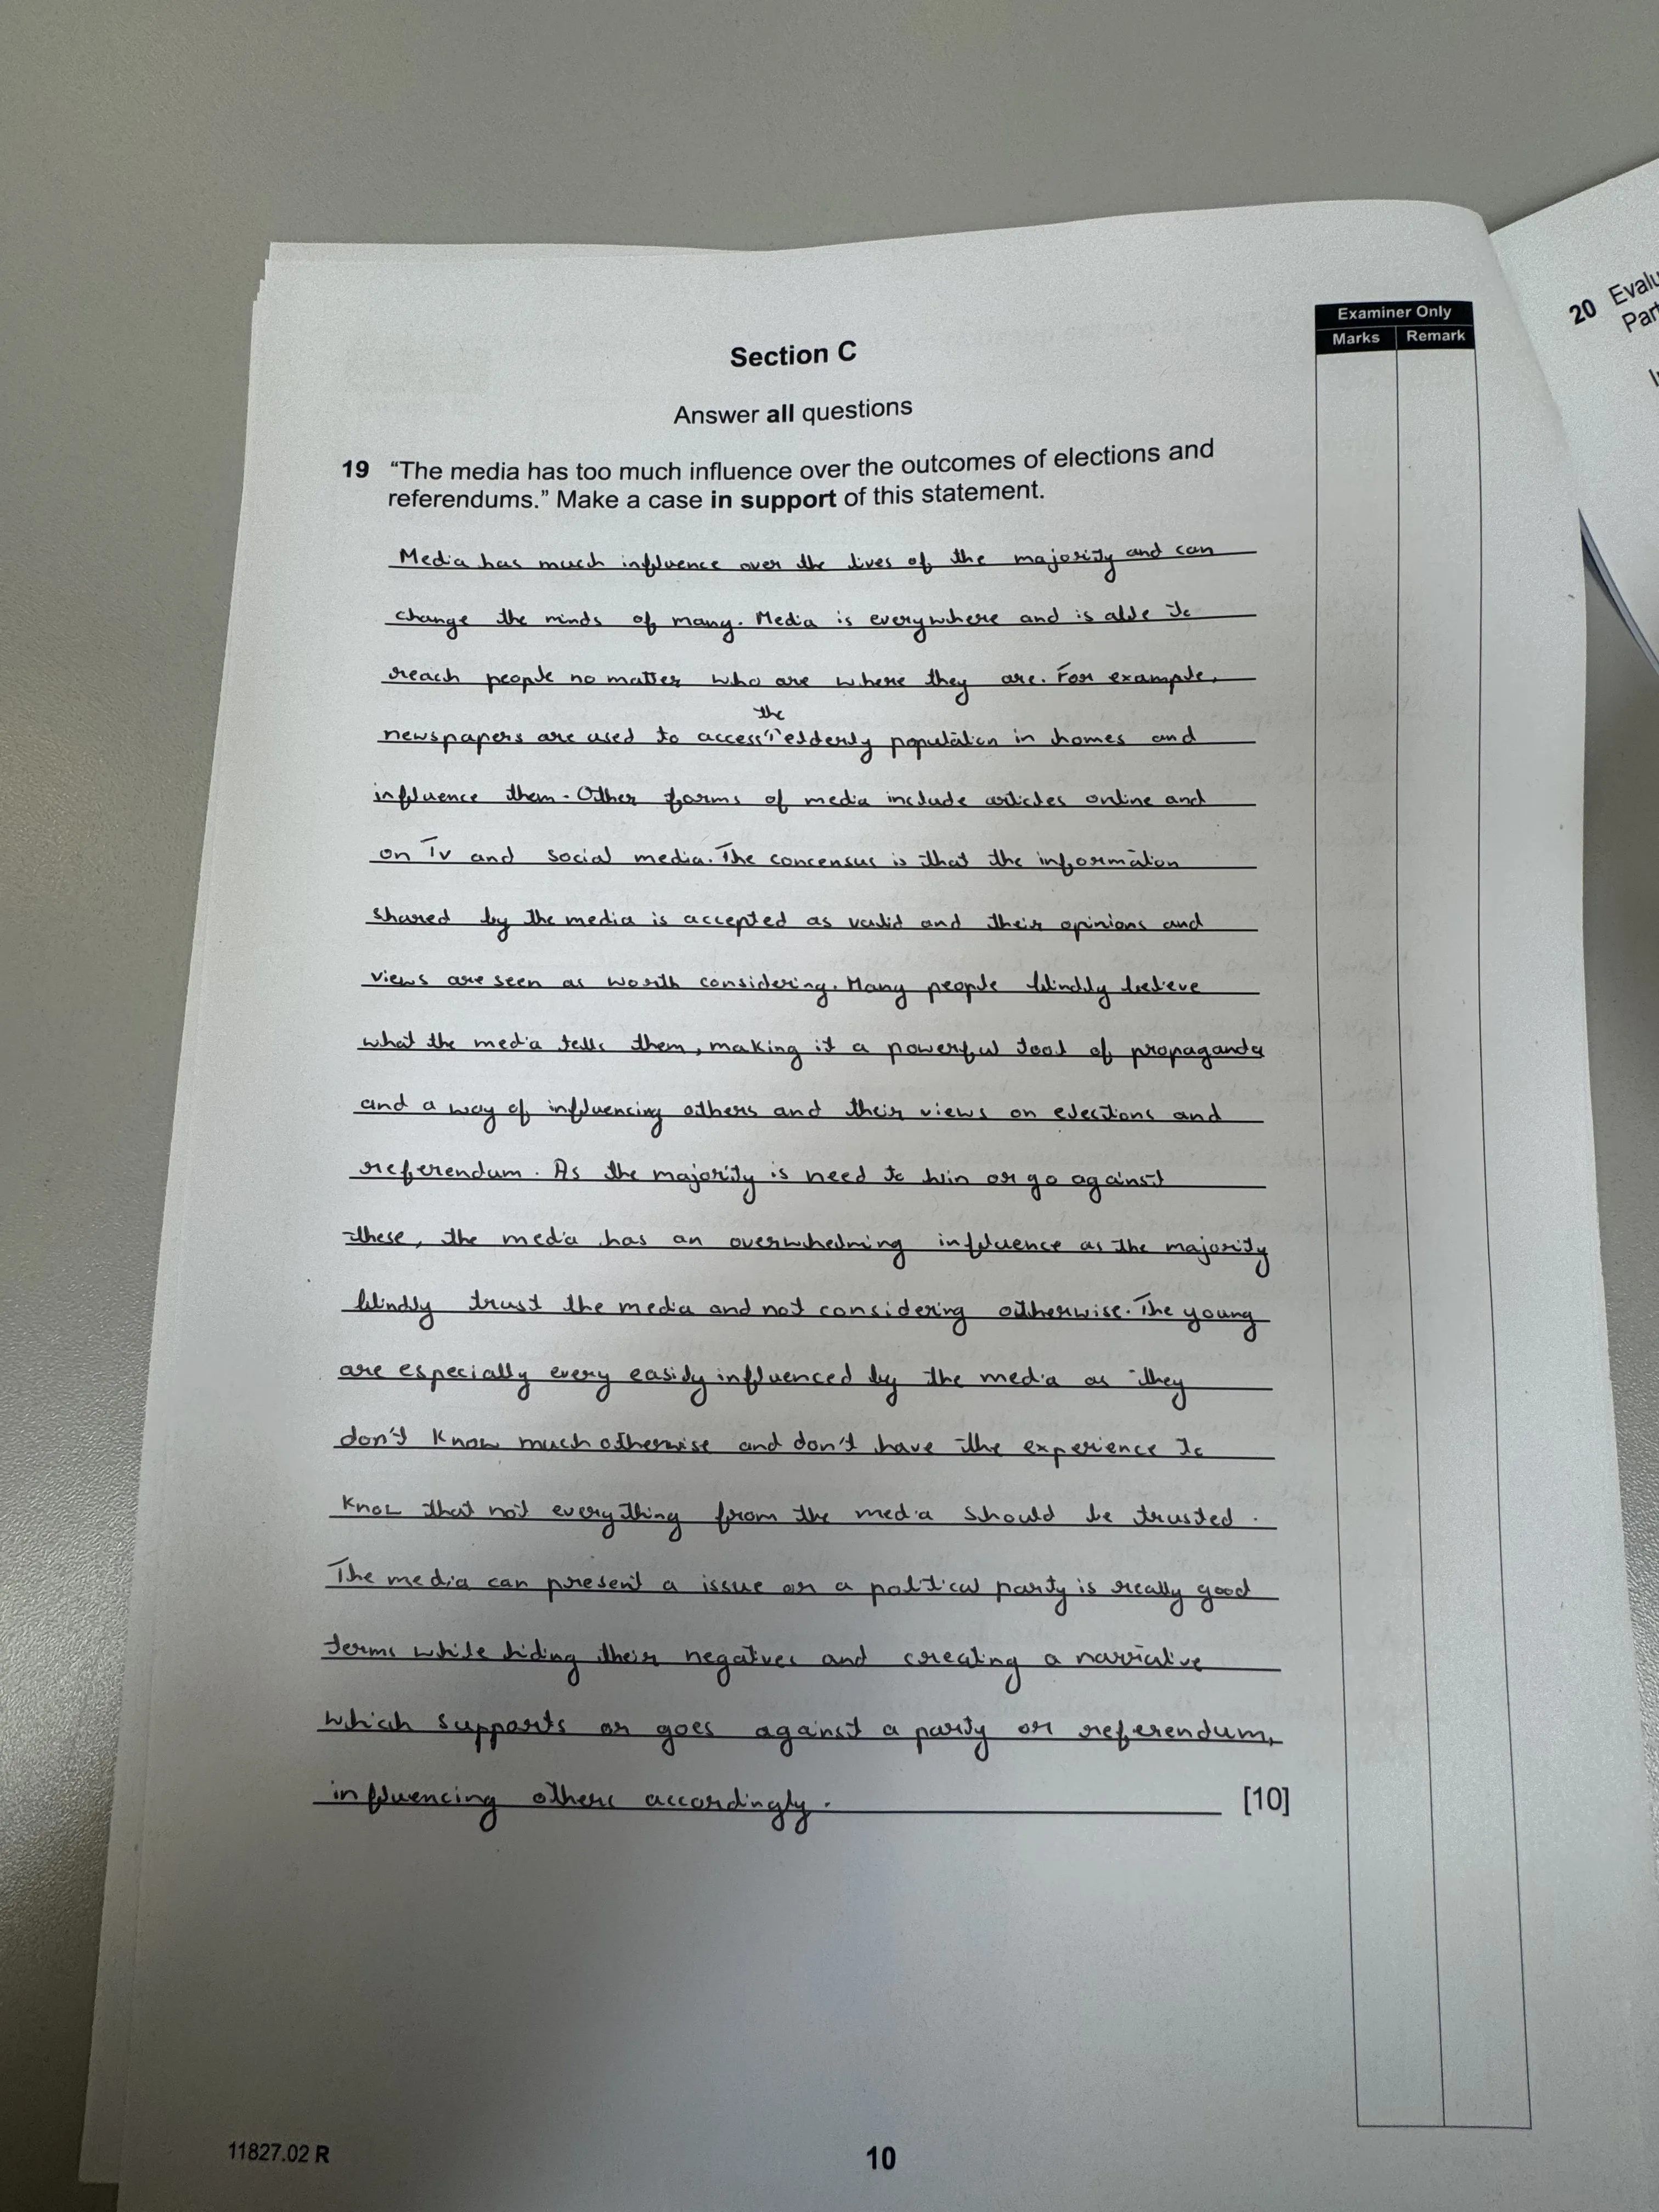 Examiner Only
Marks Remark
Section C
Answer all questions
19 “The media has too much influence over the outcomes of elections and
referendums.” Make a case in support of this statement.
Media has much influence over the lives of the majority and can
change the minds of many. Media is everywhere and is able to
reach people no matter who are where they are. For example,
the
newspapers are used to access elderly population in homes and
influence them. Other forms of media include articles online and
on Tv and social media. The concensus is that the information
shared by the media is accepted as valid and their opinions and
views are seen as worth considering. Many people blindly believe
what the media tells them, making it a powerful tool of propaganda
and a way of influencing others and their views on elections and
referendum. As the majority is need to win or go against
these, the media has an overwhelming influence as the majority
blindly trust the media and not considering otherwise. The young
are especially every easily influenced by the media as they
don't know much otherwise and don't have the experience to
know that not everything from the media should be trusted.
The media can present a issue or a political party is really good
terms while hiding their negatives and creating a narrative
which supports or goes against a party or referendum,
influencing others accordingly. [10]
11827.02 R
10
20 Evalu
Par